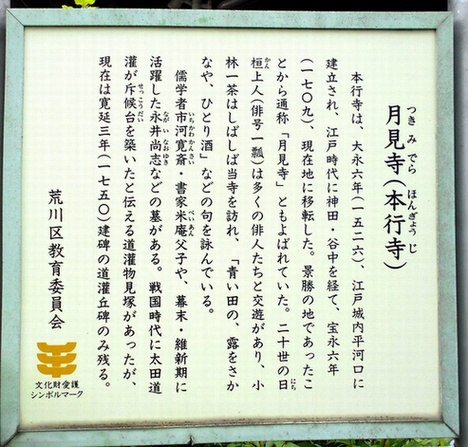 月見寺(本行寺)
つきみでら ほんぎょうじ
本行寺は、大永六年(一五二六)、江戸城内平河口に
建立され、江戸時代に神田・谷中を経て、宝永六年
(一七〇九)、現在地に移転した。景勝の地であったこ
とから通称「月見寺」ともよばれていた。二十世の日
にち
桓上人(俳号一瓢)は多くの俳人たちと交遊があり、小
かん
林一茶はしばしば当寺を訪れ、「青い田の、露をさか
なや、ひとり酒」などの句を詠んでいる。
儒学者市河寛斎・書家米庵父子や、幕末・維新期に
いちかわかんさい べいあん
活躍した永井尚志などの墓がある。戦国時代に太田道
ながいなおゆき
灌が斥候台を築いたと伝える道灌物見塚があったが、
せっこうだい
現在は寛延三年(一七五〇)建碑の道灌丘碑のみ残る。
荒川区教育委員会
文化財愛護
シンボルマーク